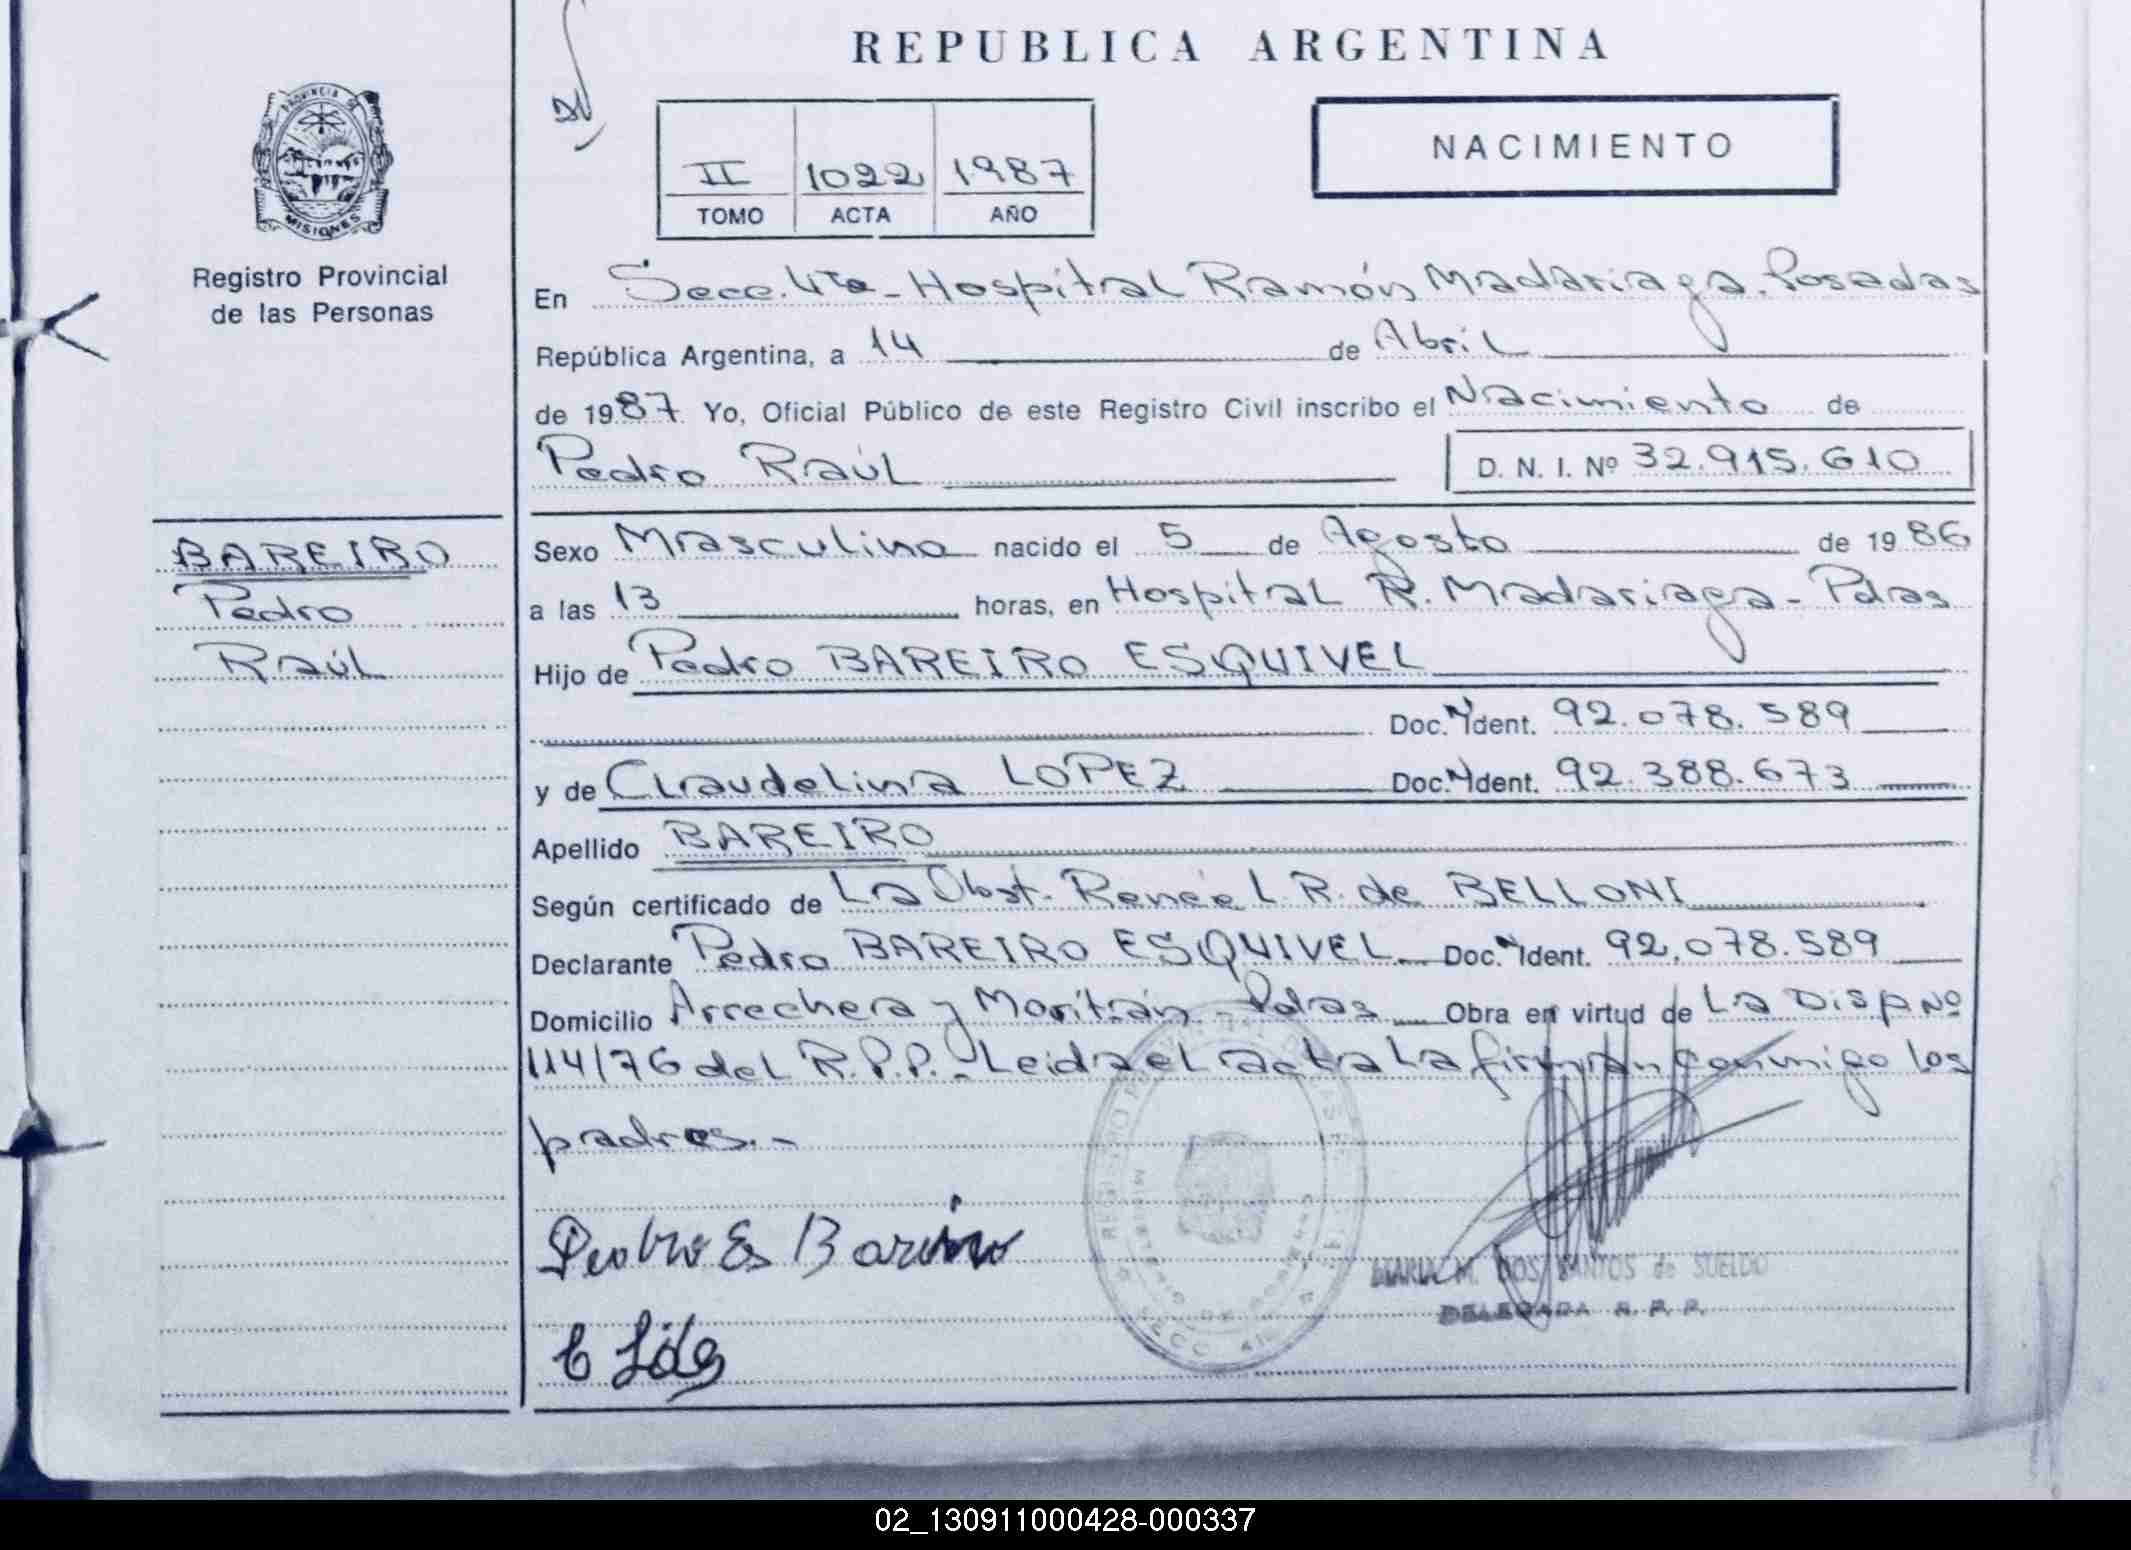 REPUBLICA ARGENTINA
NACIMIENTO
II 1022 1987
TOMO ACTA AÑO
PROVINCIA DE
MISIONES
Registro Provincial
de las Personas
En Secc. 4ta - Hospital Ramón Madariaga. Posadas
República Argentina, a 14 de Abril
de 1987 Yo, Oficial Público de este Registro Civil inscribo el Nacimiento de
Pedro Raúl D. N. I. Nº 32.915.610
BAREIRO
Pedro
Raúl
Sexo Masculino nacido el 5 de Agosto de 1986
a las 13 horas, en Hospital R. Madariaga - Pdas
Hijo de Pedro BAREIRO ESQUIVEL
Doc. Ident. 92.078.589
y de Claudelina LOPEZ Doc. Ident. 92.388.673
Apellido BAREIRO
Según certificado de La Obst. Renée L. R. de BELLONI
Declarante Pedro BAREIRO ESQUIVEL Doc. Ident. 92.078.589
Domicilio Arrechera y Moritán - Pdas Obra en virtud de La Disp Nº
114/76 del R.P.P. - Leida el acta la firman conmigo los
padres. -
MARIA M. DOS SANTOS de SUELDO
DELEGADA R. P. P.
02_130911000428-000337